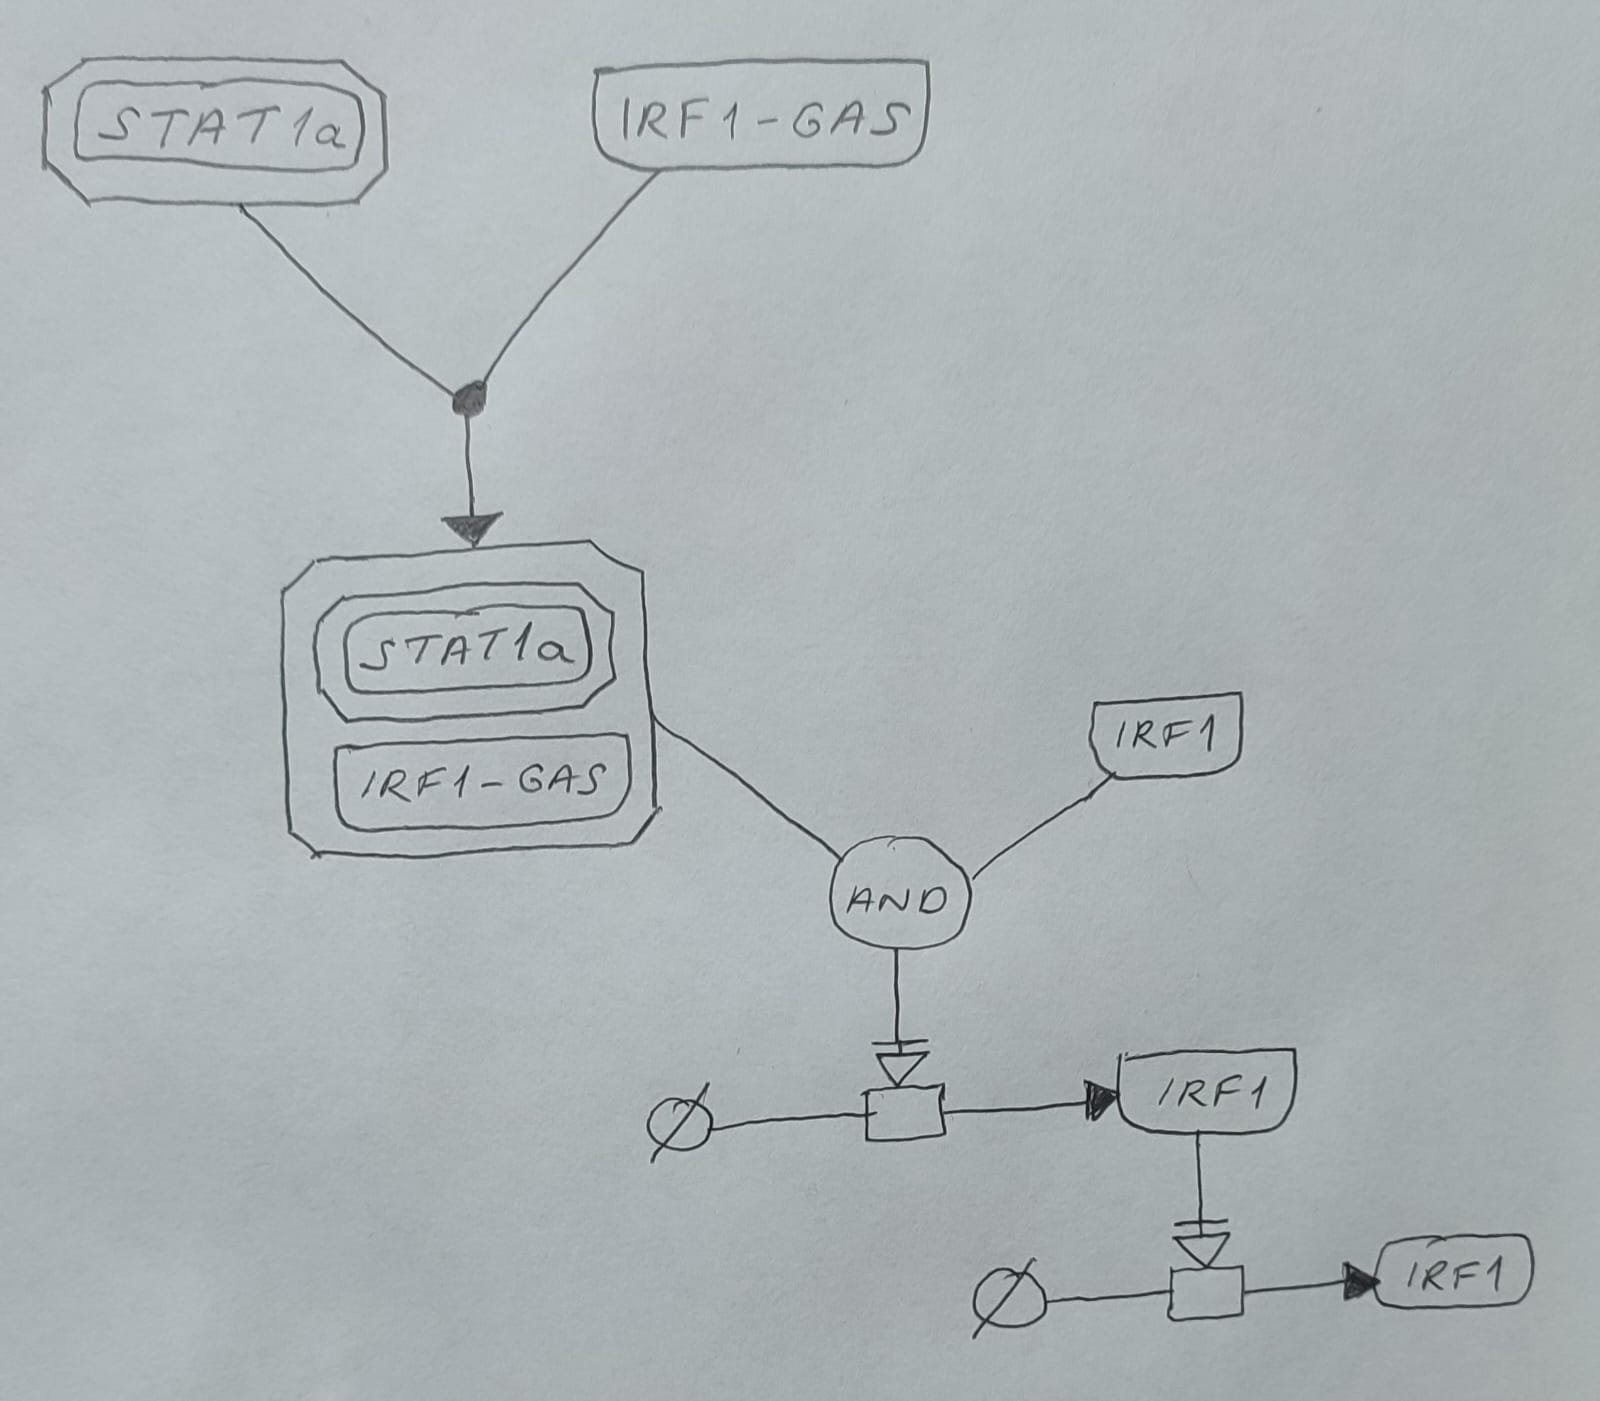 STAT1a
IRF1-GAS
STAT1a
IRF1-GAS
IRF1
AND
∅
IRF1
∅
IRF1